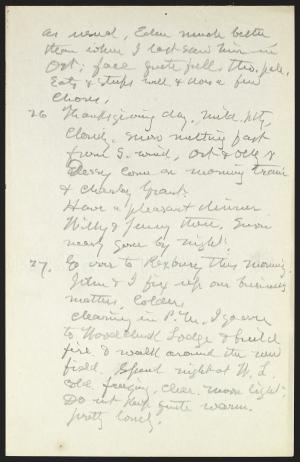 as usual, Eden much better
than when I last saw him in
Oct; face quite full, tho. pale.
Eats & sleeps well & does a few
chores.
26 Thanksgiving day, mild, ptly
cloudy, snow melting fast
from S. wind,
come on morning train
& Charley Grant.
Have a pleasant dinner
Willy & Jenny there, Snow
nearly gone by night.
27. Go over to Roxbury this morning.
John & I fix up our business
matters, Colder,
clearing in P.M., I go over
to Woodchuck Lodge & build
fire & walk around the new
field. Spend night at W. L.
cold freezing, clear. moon light.
Do not keep quite warm.
pretty lonely.